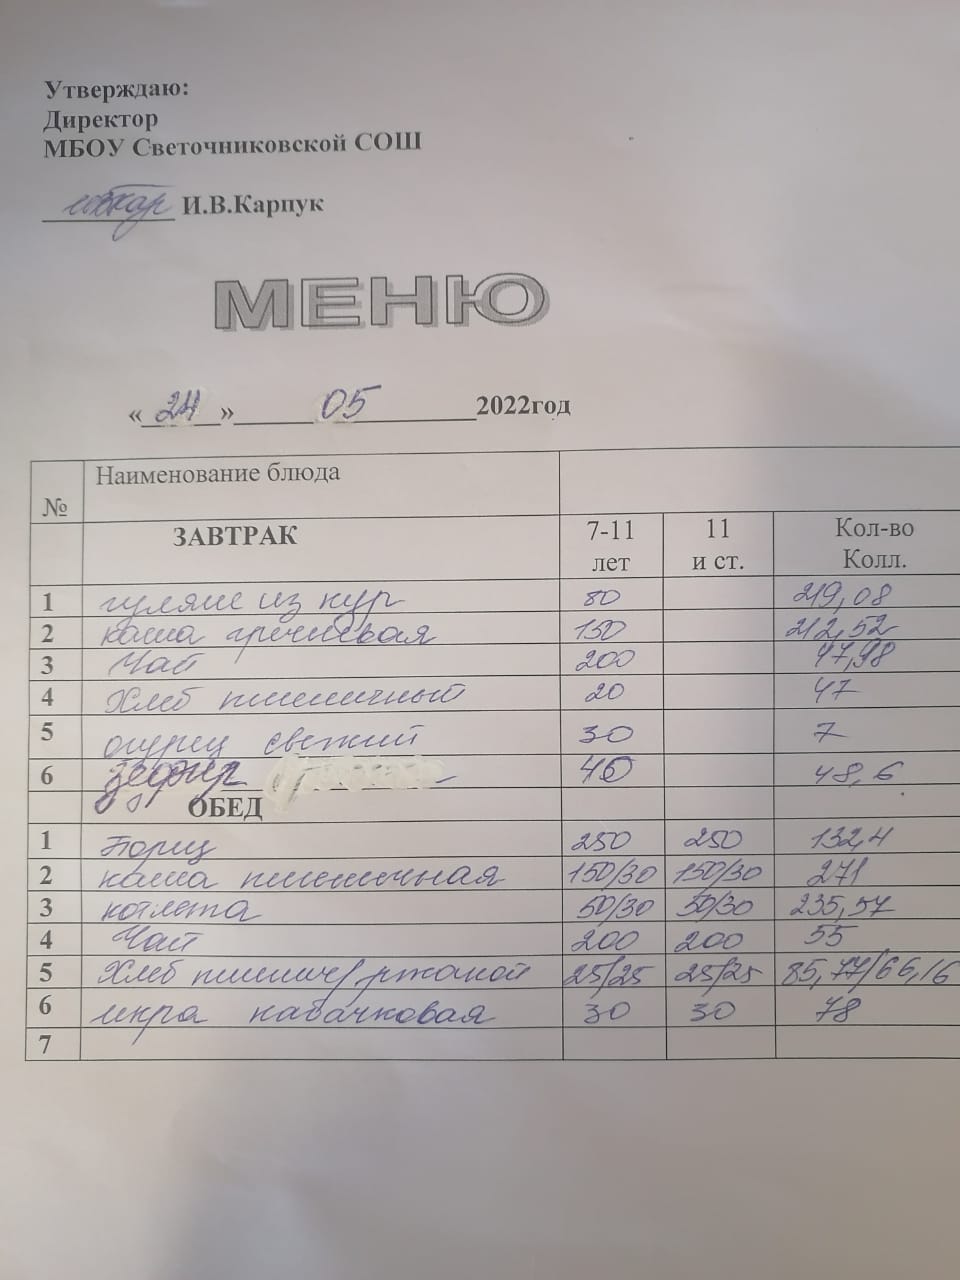 Утверждаю:
Директор
МБОУ Светочниковской СОШ
И.В.Карпук
МЕНЮ
«24» 05 2022год
№ Наименование блюда
ЗАВТРАК 7-11 лет 11 и ст. Кол-во Колл.
1 гуляш из кур 80 219,08
2 каша гречневая 150 212,52
3 Чай 200 47,98
4 Хлеб пшеничный 20 47
5 огурец свежий 30 7
6 зефир 40 48,6
ОБЕД
1 Борщ 250 250 132,4
2 каша пшеничная 150/30 150/30 271
3 котлета 50/30 50/30 235,57
4 Чай 200 200 55
5 Хлеб пшенич/ржаной 25/25 25/25 85,77/66,16
6 икра кабачковая 30 30 78
7